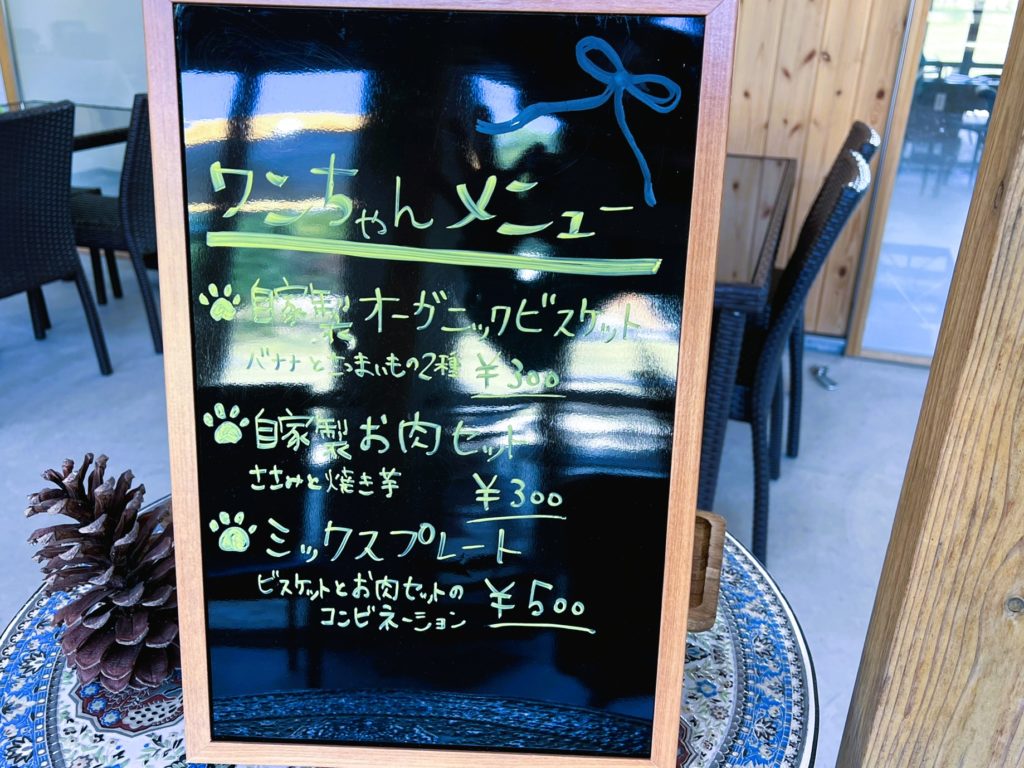 ワンちゃんメニュー
自家製オーガニックビスケット
バナナとさつまいもの2種 ¥300
自家製お肉セット
ささみと焼き芋 ¥300
ミックスプレート
ビスケットとお肉セットの
コンビネーション ¥500